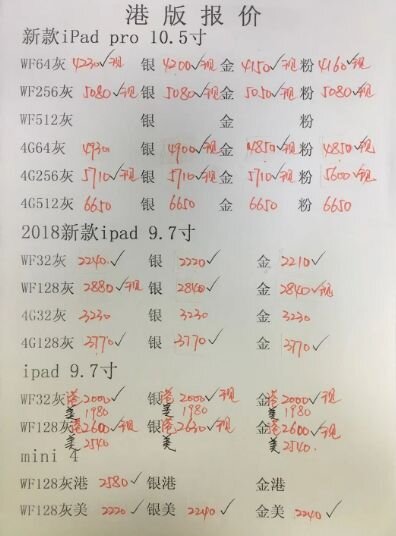 港版报价
新款iPad pro 10.5寸
WF64灰 4230✓现 银 4200✓现 金 4150✓现 粉 4160✓现
WF256灰 5080✓现 银 5080✓现 金 5050✓现 粉 5080✓现
WF512灰 银 金 粉
4G64灰 4930 银 4900✓现 金 4850✓现 粉 4850✓现
4G256灰 5710✓现 银 5710✓现 金 5710✓现 粉 5600✓现
4G512灰 6650 银 6650 金 6650 粉 6650
2018新款ipad 9.7寸
WF32灰 2240✓ 银 2220✓ 金 2210✓
WF128灰 2880✓现 银 2840✓ 金 2840✓现
4G32灰 3230 银 3230 金 3230
4G128灰 3770✓ 银 3770✓ 金 3770✓
ipad 9.7寸
WF32灰 港2000✓ 银 港2000✓现 金 港2000✓现
美1980 美1980 美1980
WF128灰 港2600✓现 银 港2630✓现 金 港2600✓现
美2540 美 美2540
mini 4
WF128灰港 2580✓ 银港 金港
WF128灰美 2220✓ 银美 2240✓ 金美 2240✓